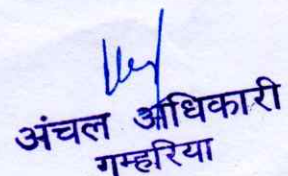 अंचल अधिकारी
गम्हरिया